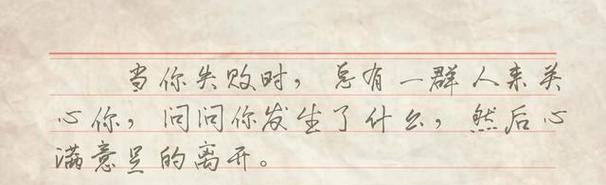 当你失败时，总有一群人来关
心你，问问你发生了什么，然后心
满意足的离开。